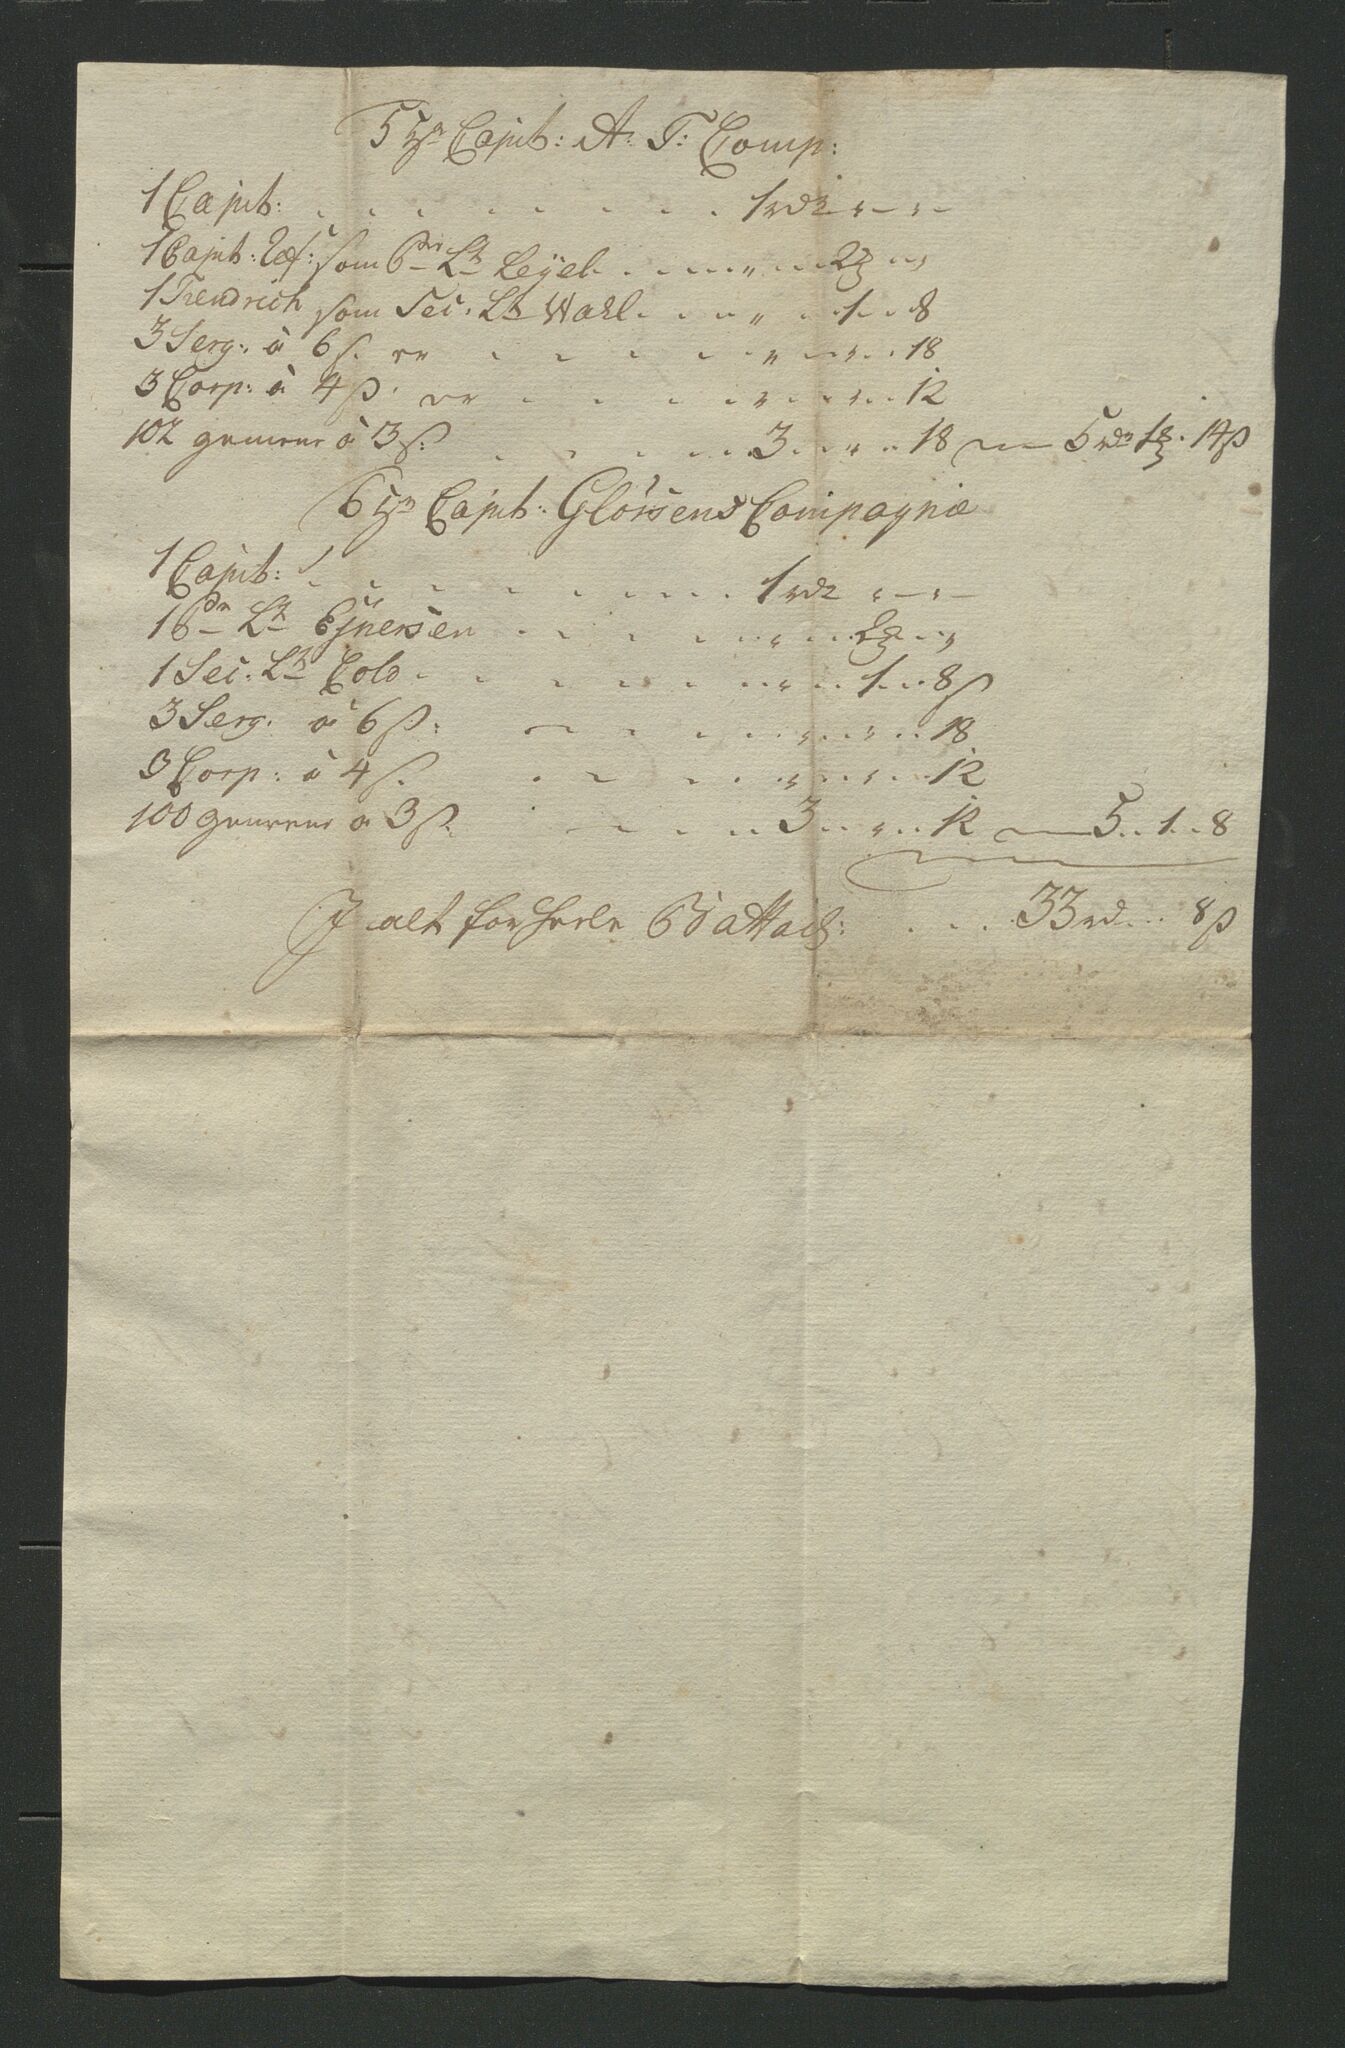 5te Capit: A: T: Comp:
1 Capit: . . . . . . . . 1 rdr " — " —
1 Capit: Res: som Pr: Lt: Leÿel . . . . . " . . 2 ℔ . . "
1 Fendrich som Sec: Lt: Wahl . . . . " . . 1 . . 8
3 Serg: à 6 ß. er . . . . . " . . " . . 18
3 Corp: à 4 ß. er . . . . . " . . " . . 12
102 gemene à 3 ß: . . . . . 3 . . " . . 18 — 5 rdr 1 ℔ . 14 ß
6te Capit: Glörsens Compagnie
1 Capit: . . . . . . . . 1 rdr " — " —
1 Pr: Lt: Ejnersen . . . . . " . . 2 ℔ . . "
1 Sec: Lt: Cold . . . . . . " . . 1 . . 8 ß
3 Serg: à 6 ß: . . . . . " . . " . . 18
3 Corp: à 4 ß. . . . . . " . . " . . 12
100 gemene à 3 ß: . . . . . 3 . . " . . 12 — 5 . . 1 . . 8
I alt for heele Battail: . . . . 33 rd . . . 8 ß